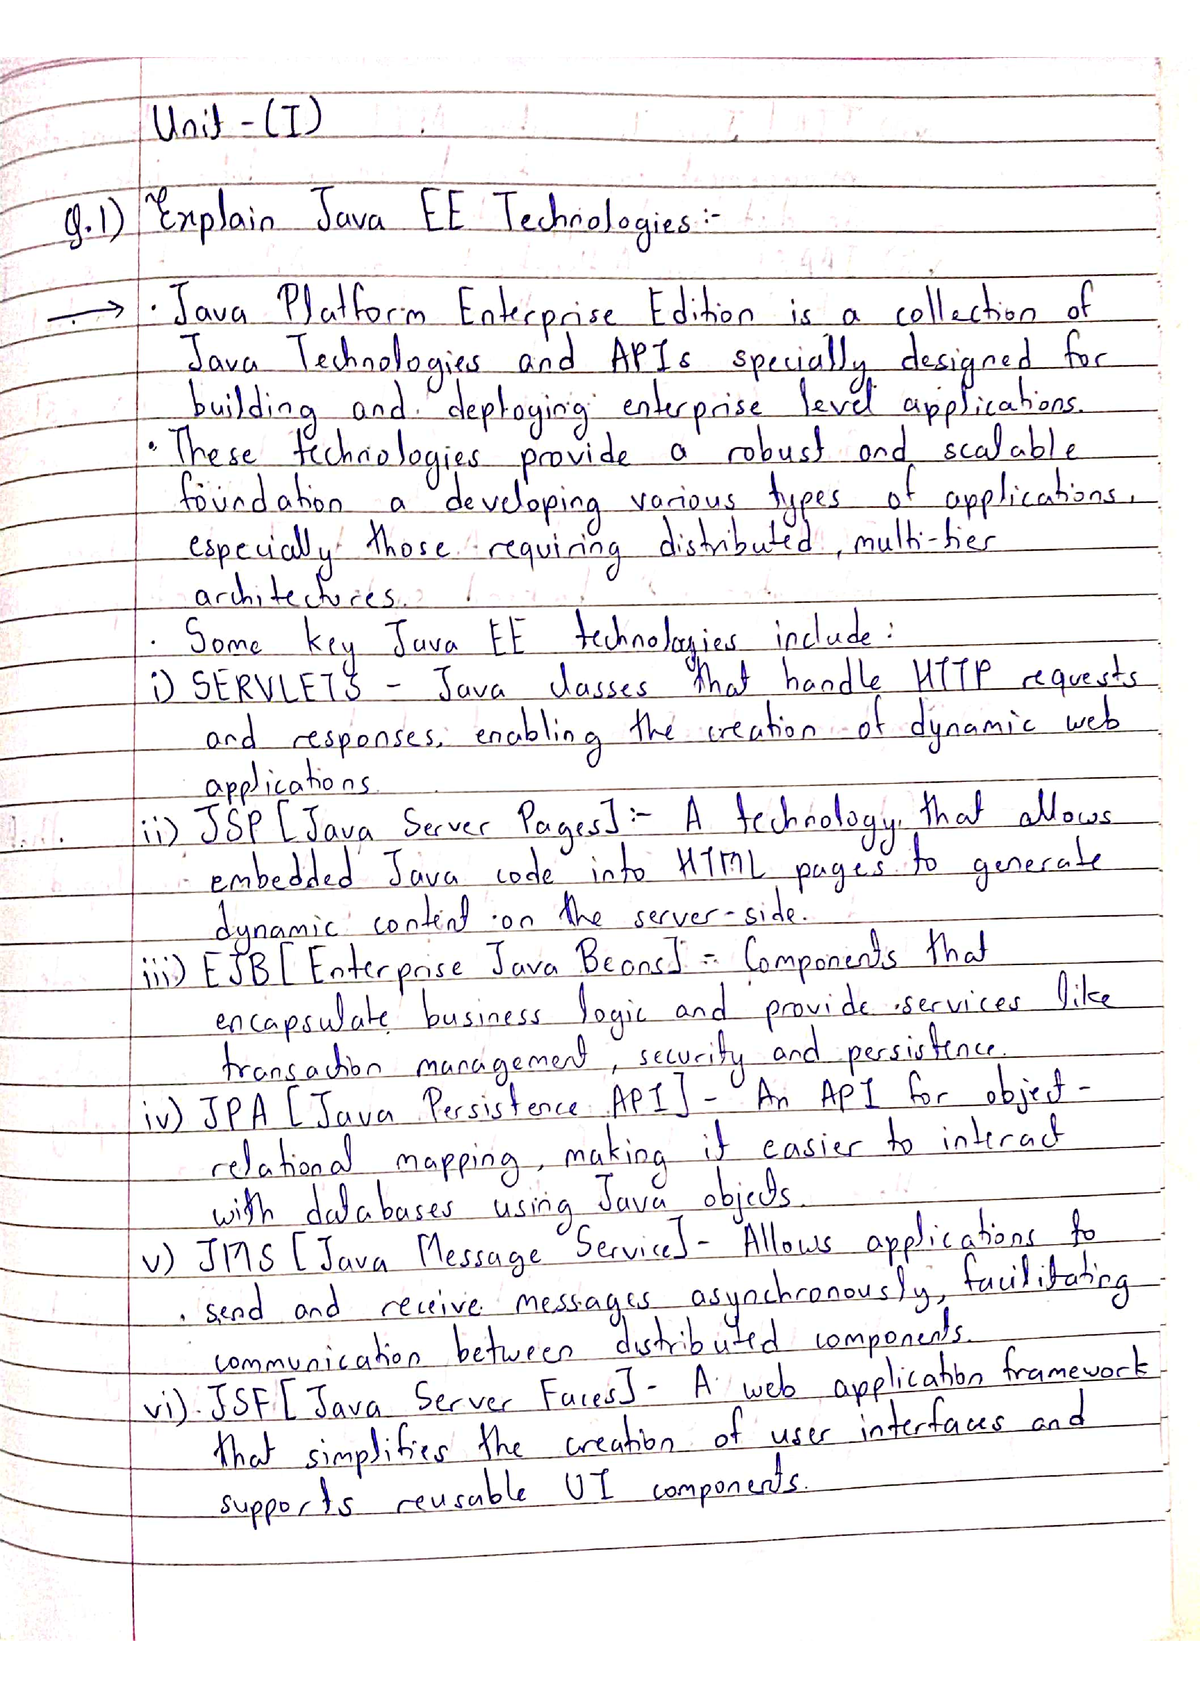 Unit - (I)
Q.1) Explain Java EE Technologies :-
→ · Java Platform Enterprise Edition is a collection of
Java Technologies and APIs specially designed for
building and deploying enterprise level applications.
· These technologies provide a robust and scalable
foundation a developing various types of applications,
especially those requiring distributed, multi-tier
architectures.
· Some key Java EE technologies include :
i) SERVLETS - Java classes that handle HTTP requests
and responses, enabling the creation of dynamic web
applications.
ii) JSP [Java Server Pages] :- A technology that allows
embedded Java code into HTML pages to generate
dynamic content on the server-side.
iii) EJB [Enterprise Java Beans] :- Components that
encapsulate business logic and provide services like
transaction management, security and persistence.
iv) JPA [Java Persistence API] - An API for object-
relational mapping, making it easier to interact
with databases using Java objects.
v) JMS [Java Message Service] - Allows applications to
send and receive messages asynchronously, facilitating
communication between distributed components.
vi) JSF [Java Server Faces] - A web application framework
that simplifies the creation of user interfaces and
supports reusable UI components.